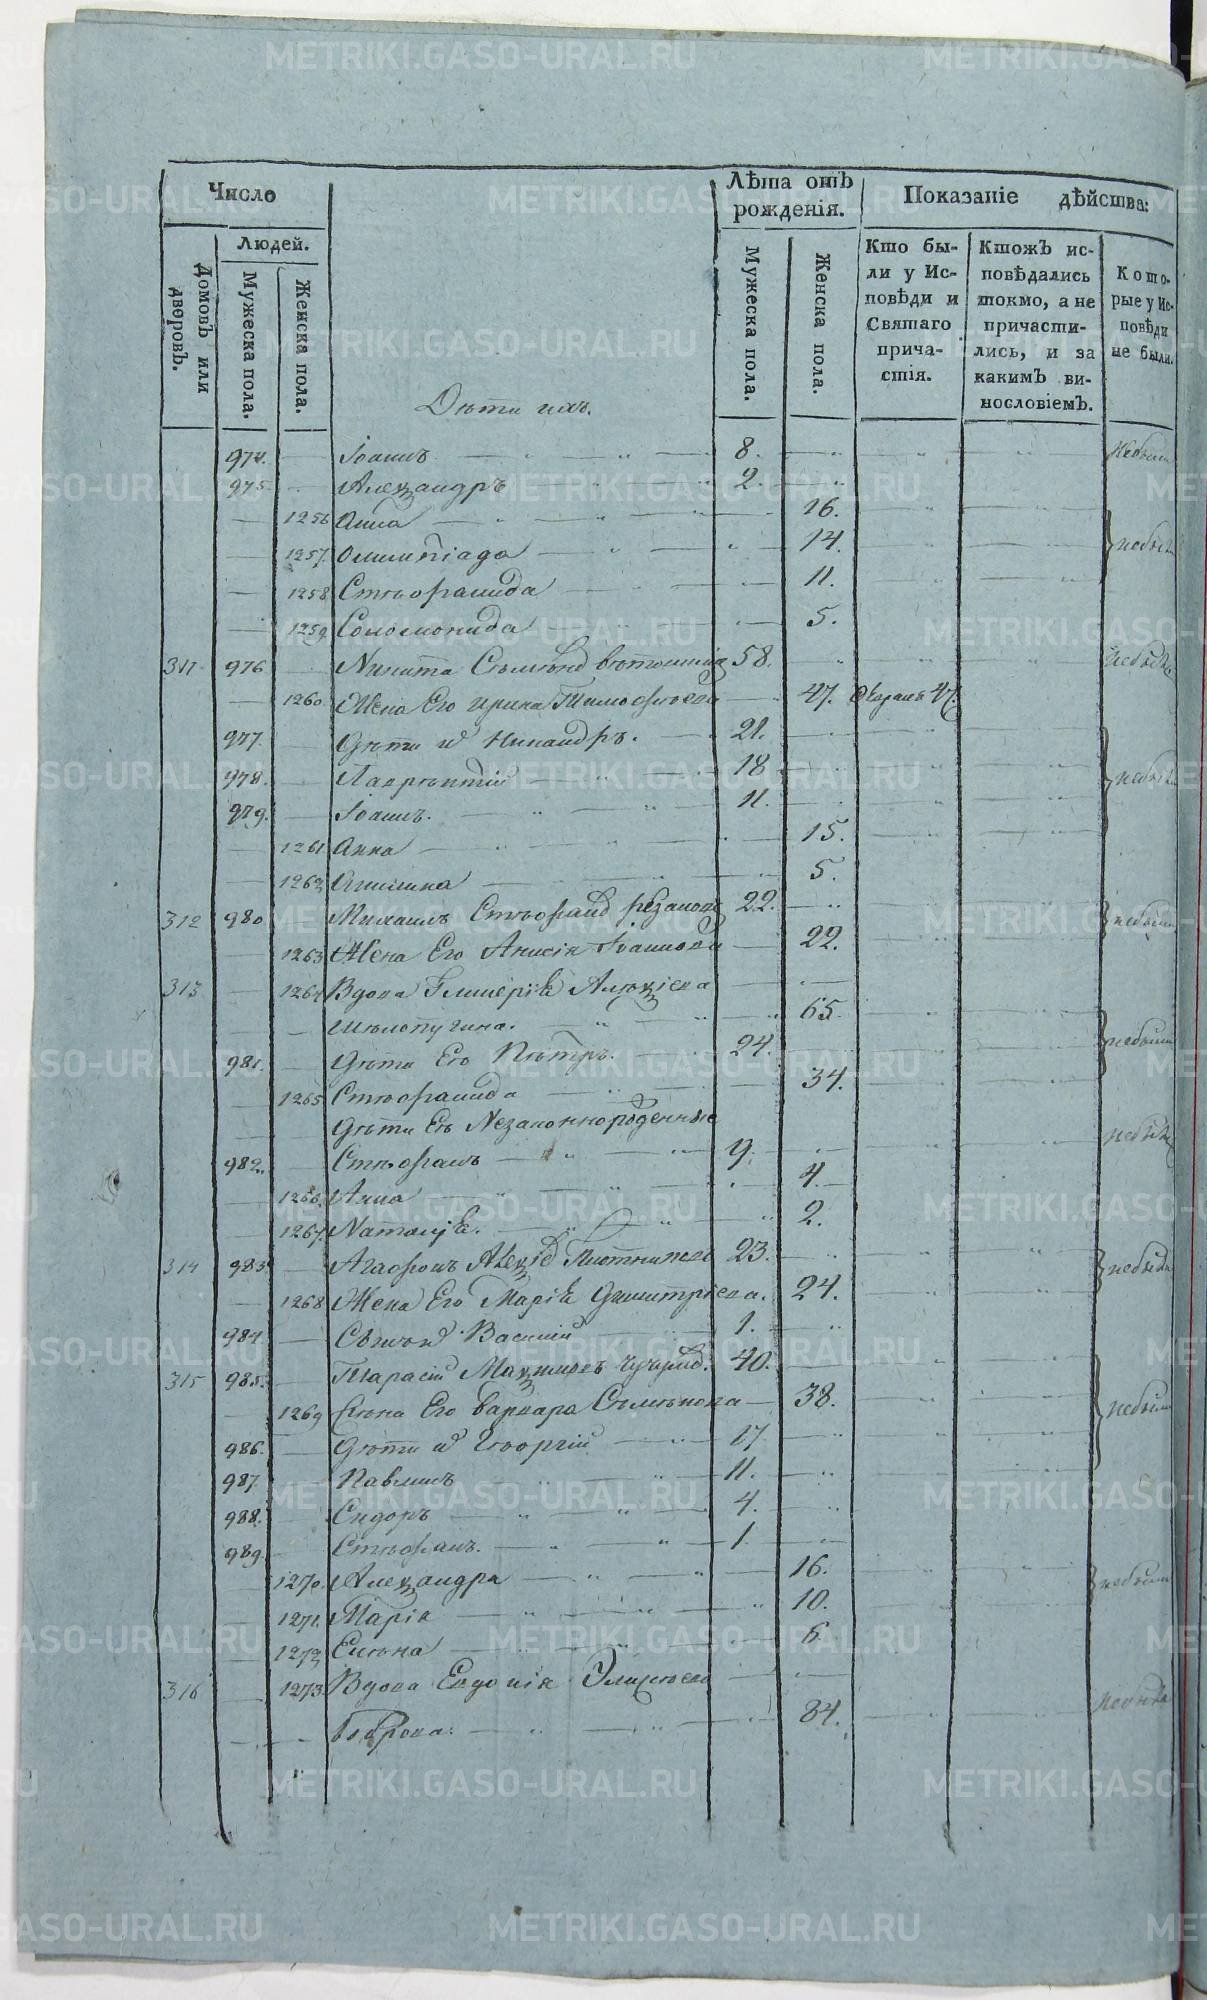 Число
Лѣта отъ рожденія.
Показаніе дѣйства:
Домовъ или дворовъ.
Людей.
Мужеска пола.
Женска пола.
Мужеска пола.
Женска пола.
Кто были у Исповѣди и Святаго причастія.
Ктожъ исповѣдались токмо, а не причастились, и за какимъ винословіемъ.
Которые у Исповѣди не были.
Дѣти ихъ.
974. Іоаннъ 8. небыли
975. Александръ 2.
1256 Анна 16.
1257. Олимпіада 14. небыли
1258 Стефанида 11.
1259 Соломонида 5.
311 976 Никита Сѣмѣнов 58. небылъ
1260. Жена Его Ирина Тимофѣева 47.
977. Дѣти их Никандръ. 21.
978. Лаврѣнтій 18 небыли
979. Іоаннъ. 11.
1261 Анна 15.
1262 5.
312 980 Михаилъ Стефанов 22. небыли
1263 Жена Его Анисія Іванова 22.
313 1264 Вдова Алексіева
65.
981. Дѣти Ея Пѣтръ. 24. небыли
1265 Стефанида 34.
Дѣти Ея Незаконнорожденные небыли
982. Стефанъ 9.
1266. Анна 4.
1267. Наталія. 2.
314 983 Агафонъ Алексіев 23. небыли
1268 Жена Его Марія Димитріева. 24.
984. Сынъ их Василій 1.
315 985. Тарасій 40.
1269 Жена Его Варвара Сѣмѣнова 38. небыли
986. Дѣти их Гѣоргій 17
987. Павлинъ 11.
988. Сидоръ 4.
989. Стефанъ. 1.
1270. Александра 16. небыли
1271. Марія 10.
1272 Елѣна 6
316 1273 Вдова Евдокія небыла
Боброва. 84.
METRIKI.GASO-URAL.RU